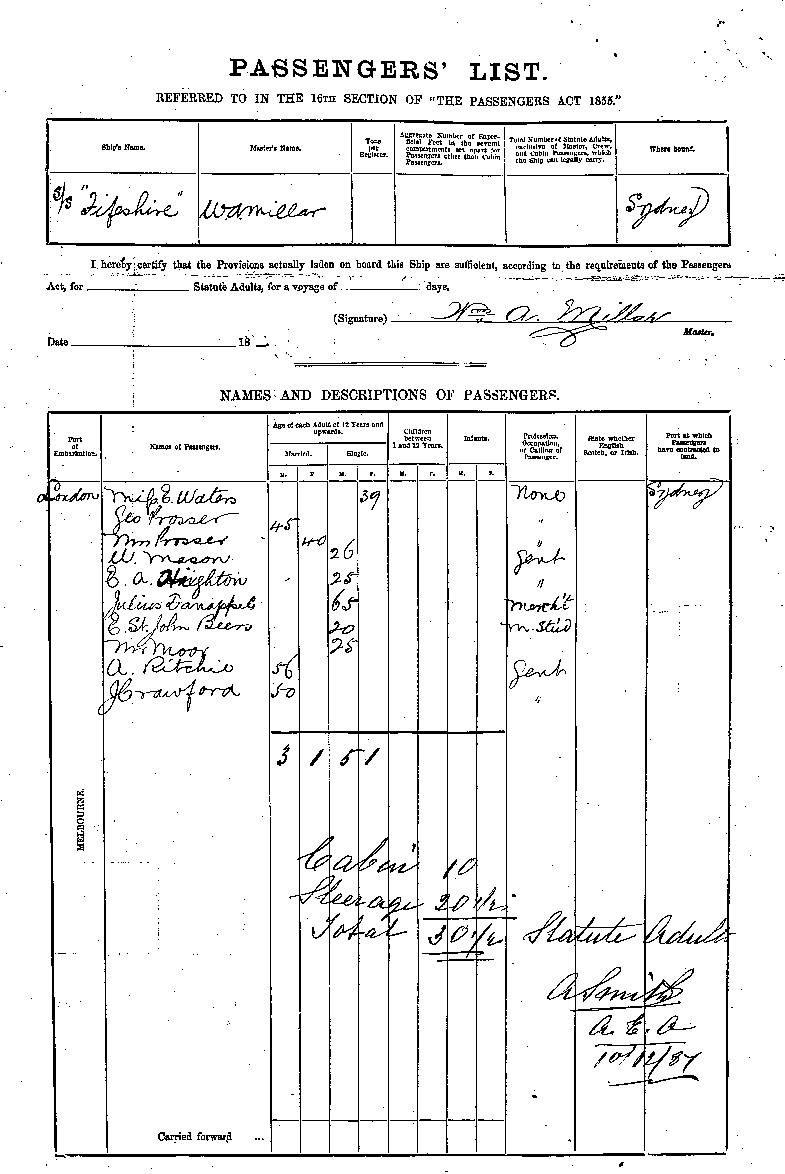 PASSENGERS' LIST.
REFERRED TO IN THE 16TH SECTION OF "THE PASSENGERS ACT 1855."
Ship's Name. Master's Name. Tons per Register. Aggregate Number of Superficial Feet in the several compartments set apart for Passengers other than Cabin Passengers. Total Number of Statute Adults, exclusive of Master, Crew, and Cabin Passengers, which the Ship can legally carry. Where bound.
S/S "Fifeshire" WAMillar Sydney
I hereby certify that the Provisions actually laden on board this Ship are sufficient, according to the requirements of the Passengers
Act, for Statute Adults, for a voyage of days.
(Signature) Wm A. Millar
Master.
Date 18
NAMES AND DESCRIPTIONS OF PASSENGERS.
Port of Embarkation. Names of Passengers. Age of each Adult of 12 Years and upwards. Children between 1 and 12 Years. Infants. Profession, Occupation, or Calling of Passenger. State whether English Scotch, or Irish. Port at which Passengers have contracted to land.
Married. Single.
M. F. M. F. M. F. M. F.
London Miss E. Waters 39 None Sydney
Geo Prosser 45 "
Mrs Prosser 40 "
W. Mason 26 Gent
E. A. Heighton 25 "
Julius 65 Mercht
E. St. John Beers 20 M. Stud
Mr Moor 25
A. Ritchie 56 Gent
J Crawford 50 "
3 1 5 1
MELBOURNE.
Cabin 10
Steerage 20 1/2
Total 30 1/2 Statute Adult
A Smith
A. E. A
10/12/87
Carried forward ...